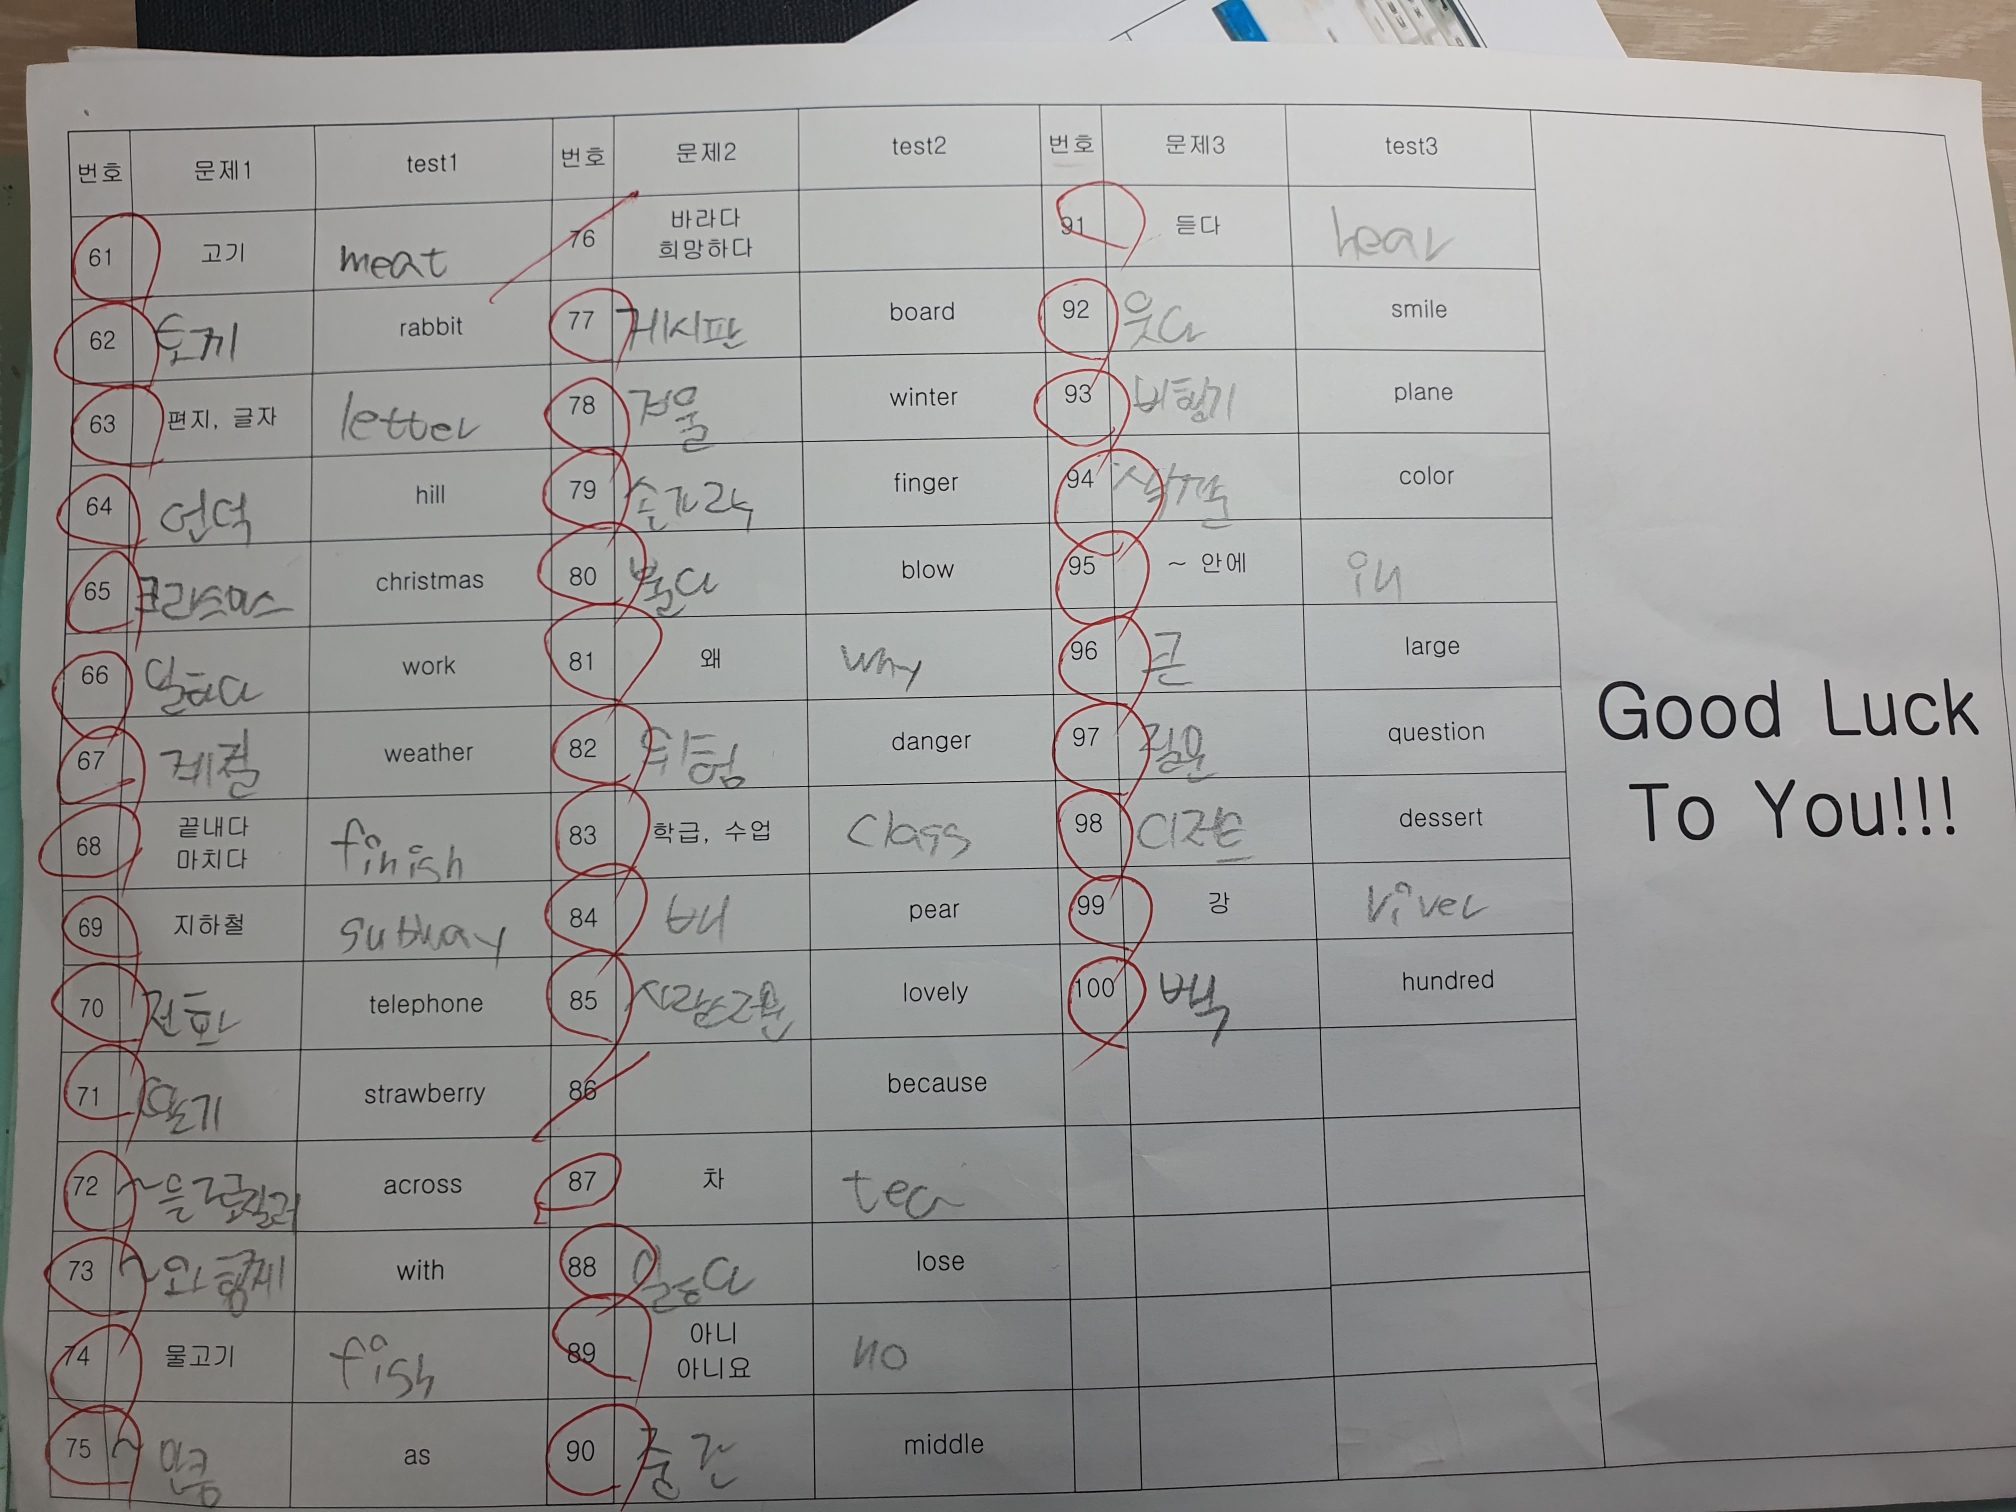 번호 문제1 test1 번호 문제2 test2 번호 문제3 test3
61 고기 meat 76 바라다 희망하다 91 듣다 hear
62 토끼 rabbit 77 게시판 board 92 웃다 smile
63 편지, 글자 letter 78 겨울 winter 93 비행기 plane
64 언덕 hill 79 손가락 finger 94 색깔 color
65 크리스마스 christmas 80 불다 blow 95 ~ 안에 in
66 일하다 work 81 왜 why 96 큰 large
67 계절 weather 82 위험 danger 97 질문 question
68 끝내다 마치다 finish 83 학급, 수업 class 98 디저트 dessert
69 지하철 subway 84 배 pear 99 강 river
70 전화 telephone 85 사랑스러운 lovely 100 백 hundred
71 딸기 strawberry 86 because
72 ~을 across 87 차 tea
73 ~와 함께 with 88 잃다 lose
74 물고기 fish 89 아니 아니요 no
75 ~만큼 as 90 중간 middle
Good Luck
To You!!!